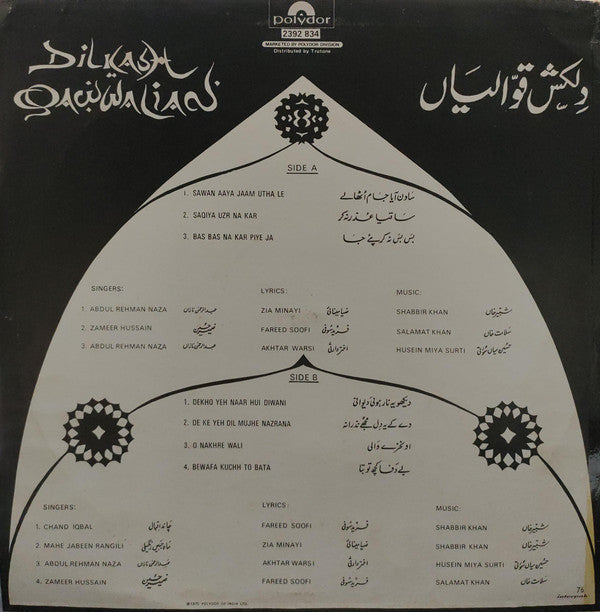 polydor
2392 834
MARKETED BY POLYDOR DIVISION
Distributed by Trutone
DILKASH
QAWWALIAN
دِلکش قوّالیاں
SIDE A
1. SAWAN AAYA JAAM UTHA LE ساون آیا جام اُٹھا لے
2. SAQIYA UZR NA KAR ساقیا عذر نہ کر
3. BAS BAS NA KAR PIYE JA بس بس نہ کر پئے جا
SINGERS: LYRICS: MUSIC:
1. ABDUL REHMAN NAZA عبدالرحمٰن نازاں ZIA MINAYI ضیا مینائی SHABBIR KHAN شبیر خاں
2. ZAMEER HUSSAIN FAREED SOOFI فرید صوفی SALAMAT KHAN سلامت خاں
3. ABDUL REHMAN NAZA عبدالرحمٰن نازاں AKHTAR WARSI اختر وارثی HUSEIN MIYA SURTI حسین میاں سُورتی
SIDE B
1. DEKHO YEH NAAR HUI DIWANI دیکھو یہ نار ہوئی دیوانی
2. DE KE YEH DIL MUJHE NAZRANA دے کے یہ دِل مجھے نذرانہ
3. O NAKHRE WALI او نخرے والی
4. BEWAFA KUCHH TO BATA بے وفا کچھ تو بتا
SINGERS: LYRICS: MUSIC:
1. CHAND IQBAL چاند اقبال FAREED SOOFI فرید صوفی SHABBIR KHAN شبیر خاں
2. MAHE JABEEN RANGILI ZIA MINAYI ضیا مینائی SHABBIR KHAN شبیر خاں
3. ABDUL REHMAN NAZA عبدالرحمٰن نازاں AKHTAR WARSI اختر وارثی HUSEIN MIYA SURTI حسین میاں سُورتی
4. ZAMEER HUSSAIN FAREED SOOFI فرید صوفی SALAMAT KHAN سلامت خاں
POLYDOR OF INDIA LTD.
76
interpak